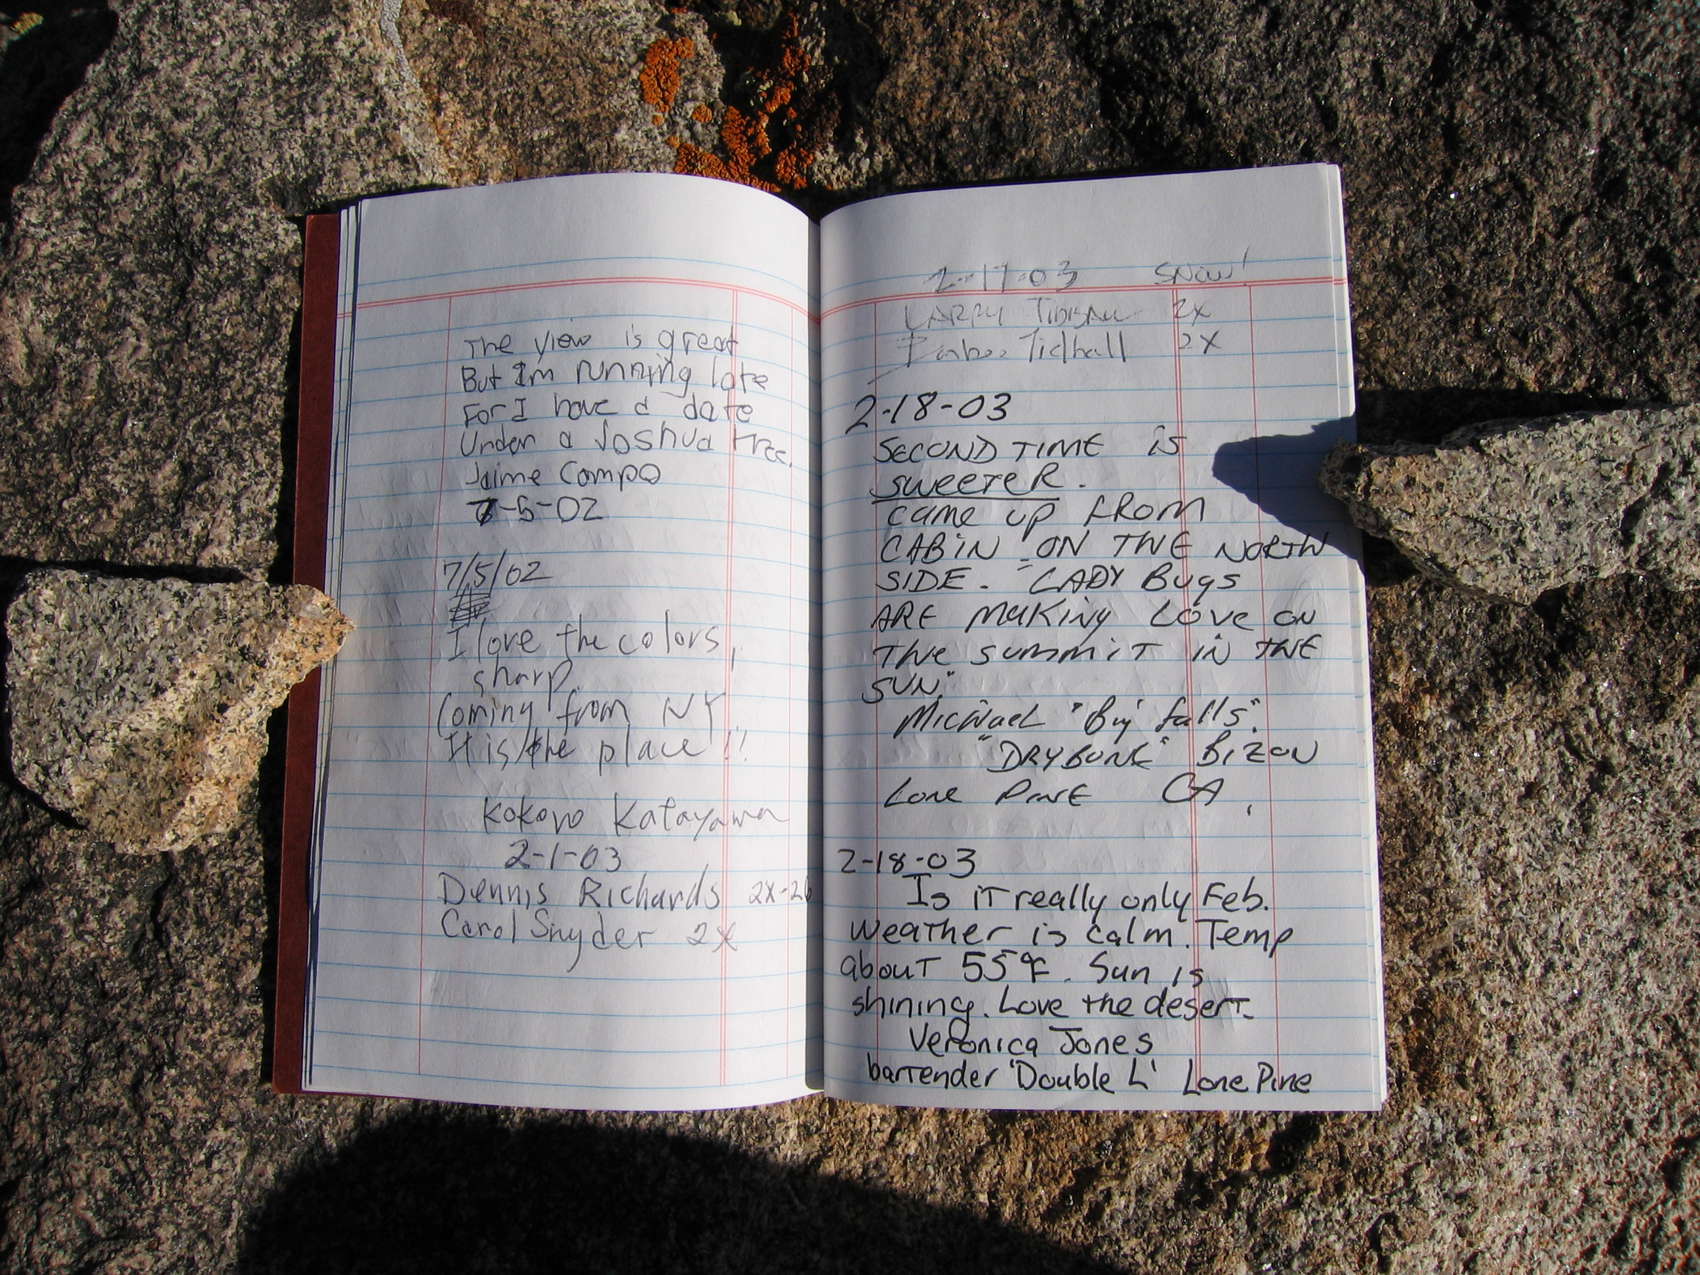 The view is great
But Im running late
For I have a date
Under a Joshua tree.
Jaime Campo
7-5-02
7/5/02
I love the colors,
sharp.
Coming from NY
It is the place!!
Kokoro Katayama
2-1-03
Dennis Richards 2x-26
Carol Snyder 2x
2-17-03 SNOW!
LARRY 2x
Tidball 2x
2-18-03
SECOND TIME is
SWEETER.
came up from
CABiN ON THE NORTH
SIDE. "LADY Bugs
ARE MaKiNg LOVE ON
THE SummiT iN THE
SUN"
MicHaEL "Big falls"
"DRYBONE" BiZON
LONE PiNE CA.
2-18-03
Is iT really only Feb.
Weather is calm. Temp
about 55°F. Sun is
shining. Love the desert.
Veronica Jones
bartender 'Double L' Lone Pine